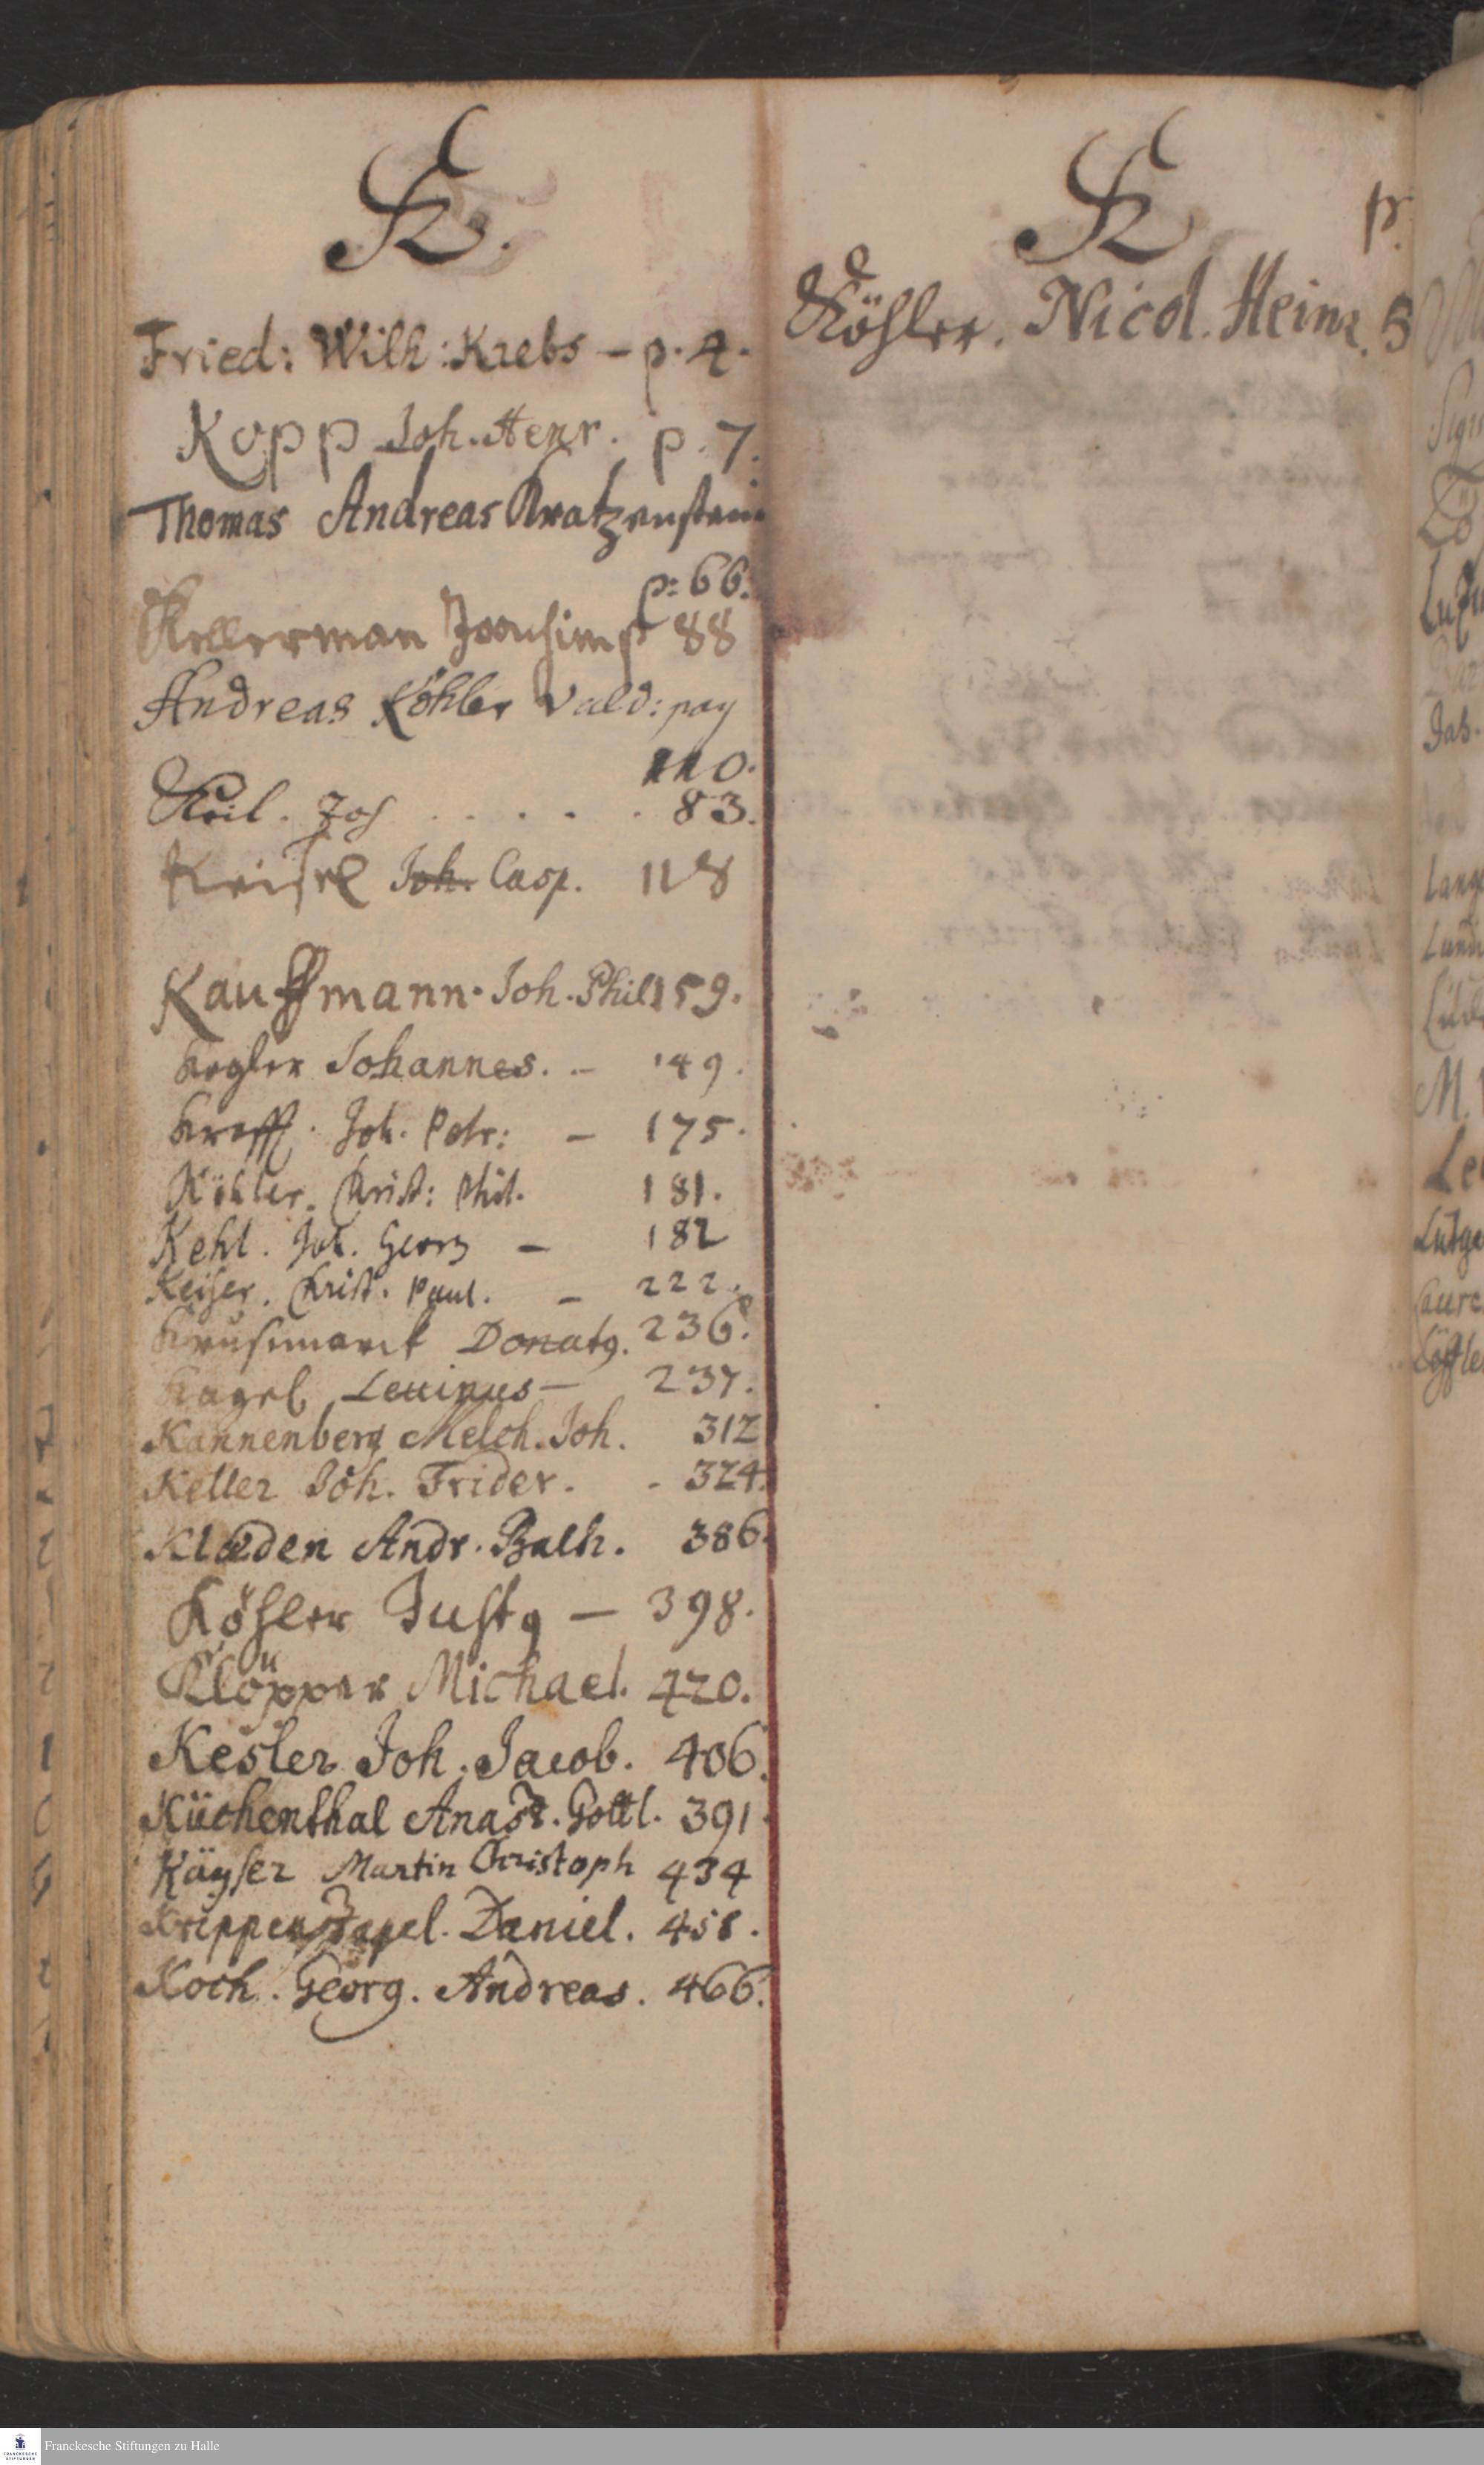 K.
Fried: Wilh: Krebs – p. 4.
Kopp Joh. Henr. p. 7.
Thomas Andreas Kratzenstein
p: 66.
Kellerman Joachim p 88
Andreas Köhler Vald: pag
110.
Keil. Joh . . . . . 83.
Keisel Joh. Casp. 118
Kauffmann. Joh. Phil 159.
Kegler Johannes. – 149.
Krafft. Joh. Petr: – 175.
Köhler. Christ: Phil. 181.
Kehl. Joh. Georg – 182
Keiser. Christ. Paul. – 222.
Krusemarck Donatg. 236.
Kagel Leuinus – 237.
Kannenberg Melch. Joh. 312
Keller Joh. Frider. - 324.
Klæden Andr. Balth. 386.
Köhler Justg – 398.
Klöpper Michael. 420.
Kesler Joh. Jacob. 406.
Küchenthal Anast. Gottl. 391.
Käyser Martin Christoph 434
Krippenstapel. Daniel. 458.
Koch. Georg. Andreas. 466.
K
p.
Köhler. Nicol. Heinr. 5
Franckesche Stiftungen zu Halle